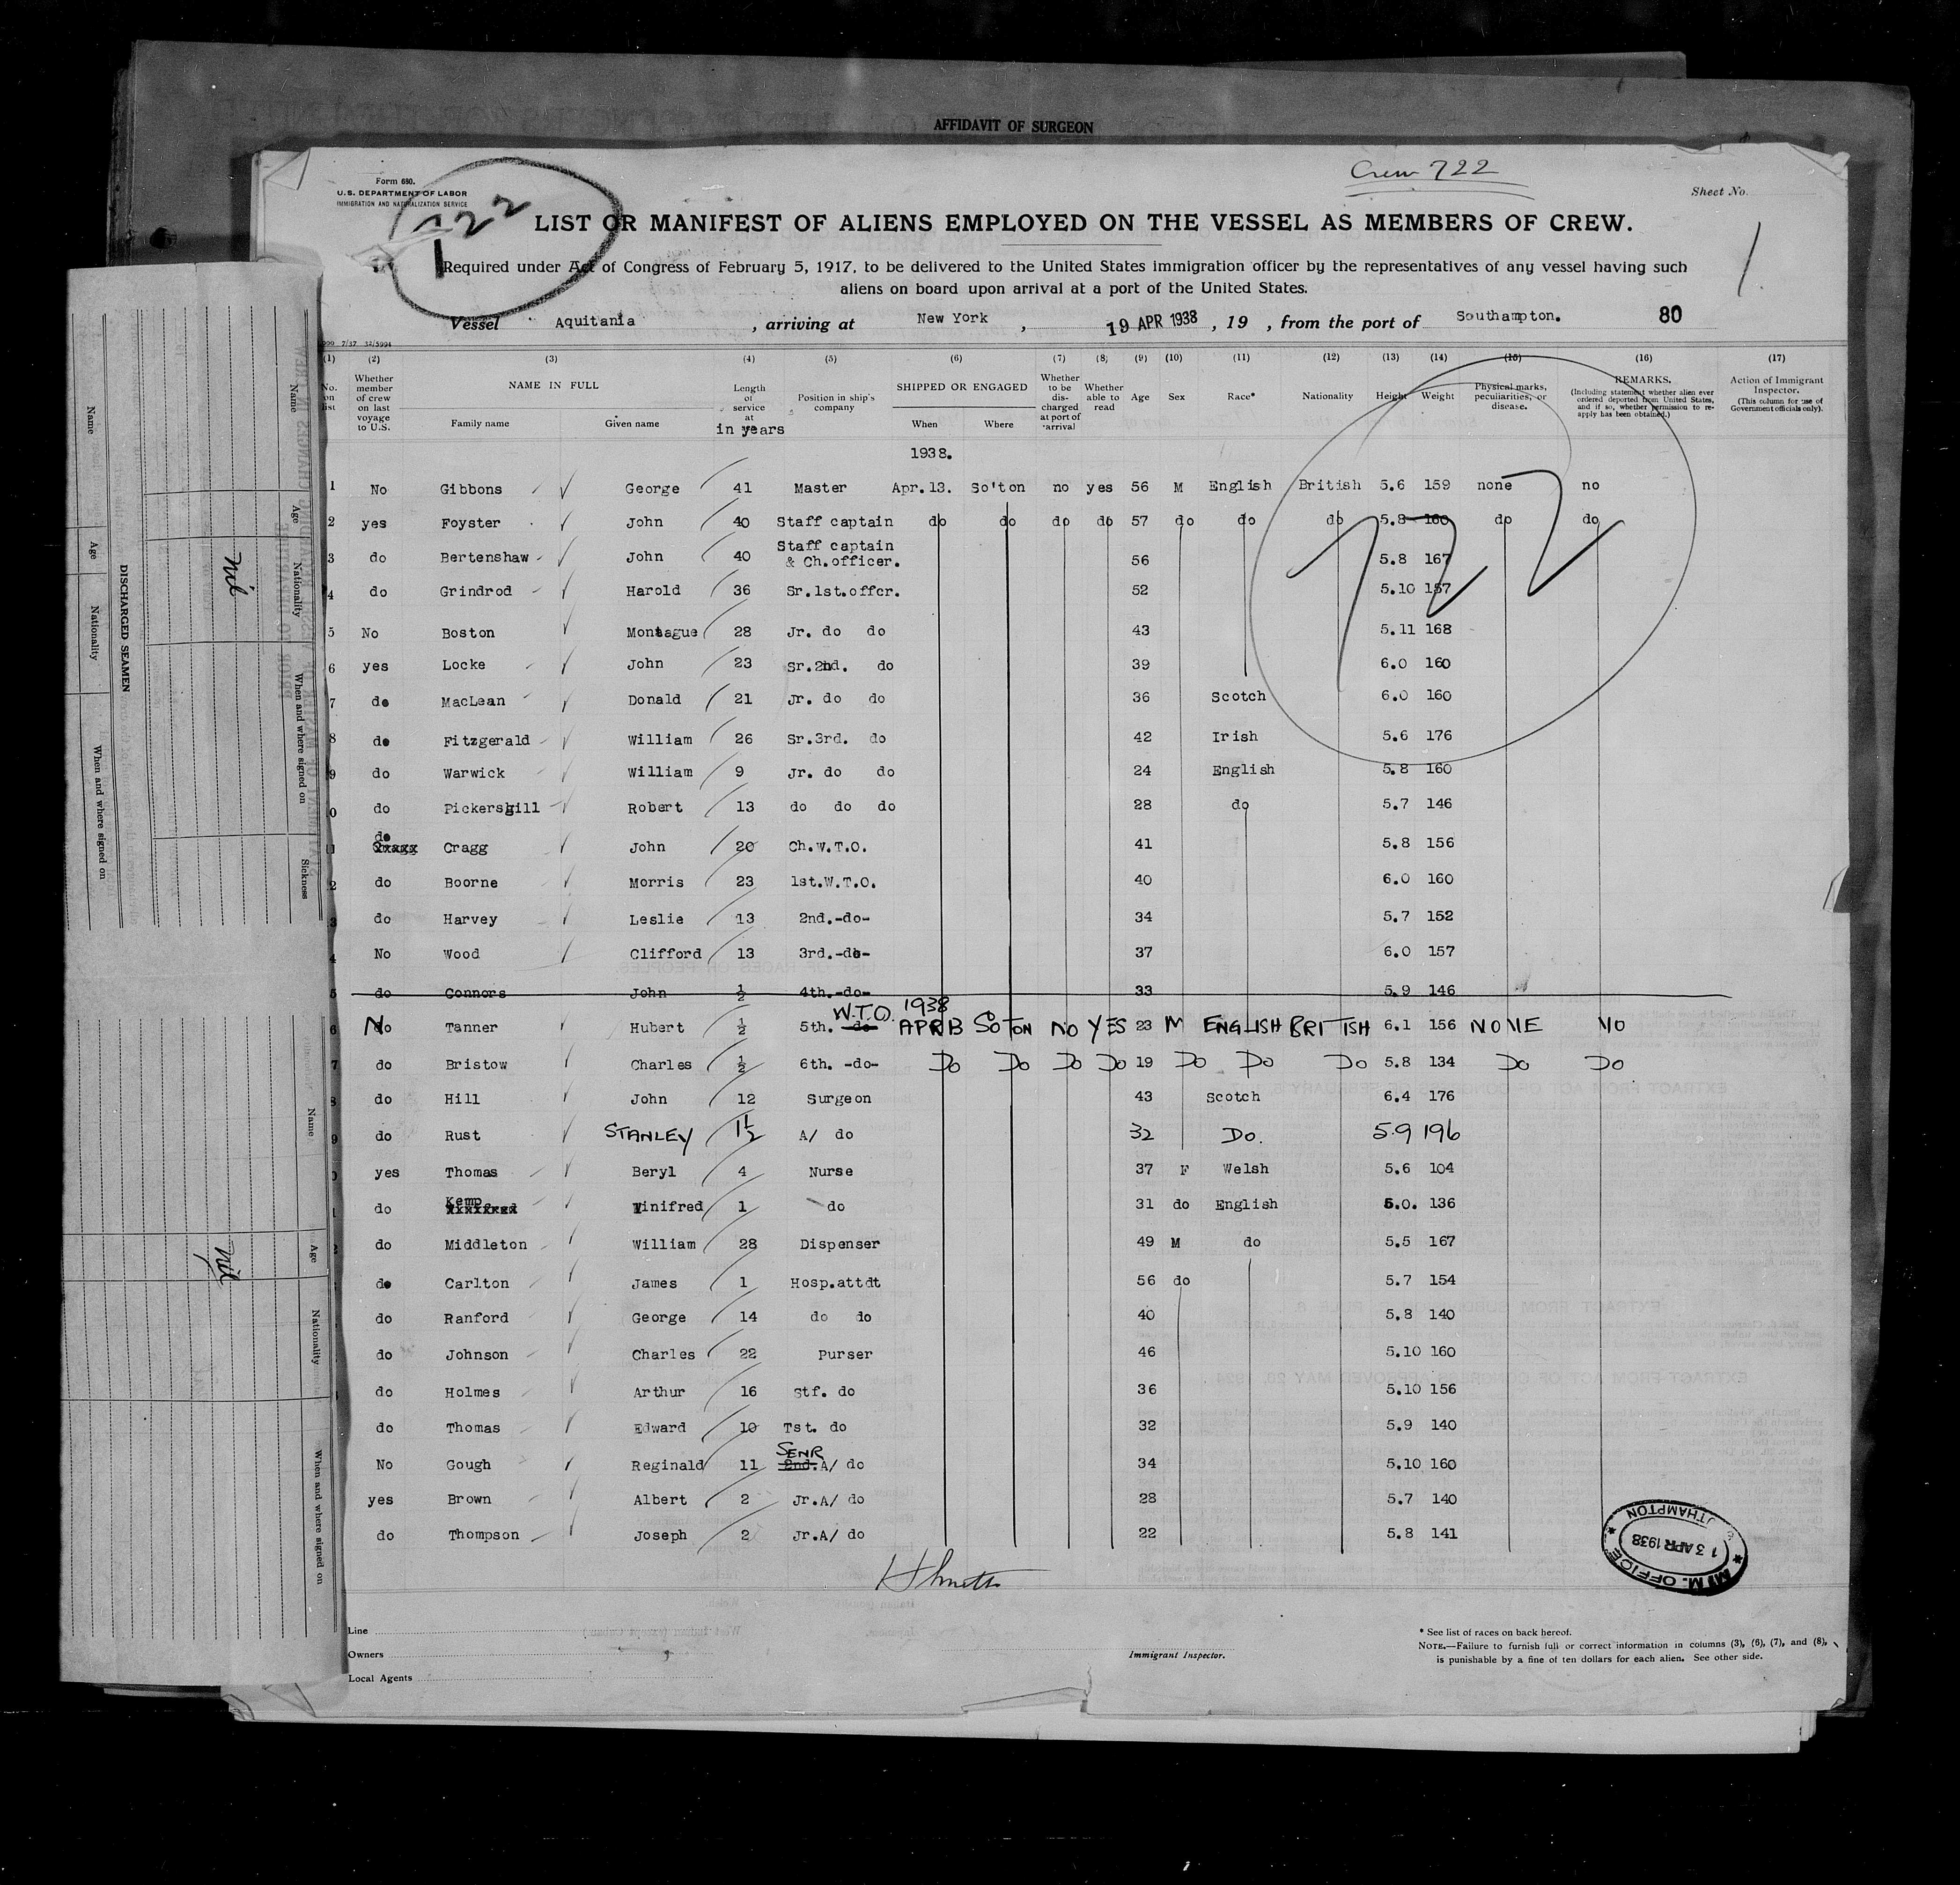 AFFIDAVIT OF SURGEON
Crew 722
Form 680.
U.S. DEPARTMENT OF LABOR
IMMIGRATION AND NATURALIZATION SERVICE
Sheet No.
722
1
LIST OR MANIFEST OF ALIENS EMPLOYED ON THE VESSEL AS MEMBERS OF CREW.
Required under Act of Congress of February 5, 1917, to be delivered to the United States immigration officer by the representatives of any vessel having such
aliens on board upon arrival at a port of the United States.
Vessel Aquitania , arriving at New York , 19 APR 1938 , 19 , from the port of Southampton. 80
(1) (2) (3) (4) (5) (6) (7) (8) (9) (10) (11) (12) (13) (14) (15) (16) (17)
No. on list
Whether member of crew on last voyage to U.S.
NAME IN FULL
Family name Given name
Length of service at in years
Position in ship's company
SHIPPED OR ENGAGED
When Where
Whether to be discharged at port of arrival
Whether able to read
Age
Sex
Race*
Nationality
Height
Weight
Physical marks, peculiarities, or disease.
REMARKS.
(Including statement whether alien ever ordered deported from United States, and if so, whether permission to reapply has been obtained.)
Action of Immigrant Inspector.
(This column for use of Government officials only).
1938.
722
1 No Gibbons George 41 Master Apr.13. So'ton no yes 56 M English British 5.6 159 none no
2 yes Foyster John 40 Staff captain do do do do 57 do do do 5.8 160 do do
3 do Bertenshaw John 40 Staff captain & Ch.officer. 56 5.8 167
4 do Grindrod Harold 36 Sr.1st.offcr. 52 5.10 157
5 No Boston Montague 28 Jr. do do 43 5.11 168
6 yes Locke John 23 Sr.2nd. do 39 6.0 160
7 do MacLean Donald 21 Jr. do do 36 Scotch 6.0 160
8 do Fitzgerald William 26 Sr.3rd. do 42 Irish 5.6 176
9 do Warwick William 9 Jr. do do 24 English 5.8 160
0 do Pickersgill Robert 13 do do do 28 do 5.7 146
do Cragg John 20 Ch.W.T.O. 41 5.8 156
2 do Boorne Morris 23 1st.W.T.O. 40 6.0 160
3 do Harvey Leslie 13 2nd.-do- 34 5.7 152
4 No Wood Clifford 13 3rd.-do- 37 6.0 157
5 do Connors John ½ 4th.-do- 33 5.9 146
W.T.O. 1938
6 No Tanner Hubert ½ 5th. do APR 13 SOTON NO YES 23 M ENGLISH BRITISH 6.1 156 NONE NO
7 do Bristow Charles ½ 6th. -do- Do Do Do Do 19 Do Do Do 5.8 134 Do Do
8 do Hill John 12 Surgeon 43 Scotch 6.4 176
9 do Rust STANLEY 1½ A/ do 32 Do. 5.9 196
0 yes Thomas Beryl 4 Nurse 37 F Welsh 5.6 104
1 do Kemp Winifred 1 do 31 do English 5.0. 136
2 do Middleton William 28 Dispenser 49 M do 5.5 167
do Carlton James 1 Hosp.attdt 56 do 5.7 154
do Ranford George 14 do do 40 5.8 140
do Johnson Charles 22 Purser 46 5.10 160
do Holmes Arthur 16 Stf. do 36 5.10 156
do Thomas Edward 10 Tst. do 32 5.9 140
SENR
No Gough Reginald 11 2nd.A/ do 34 5.10 160
yes Brown Albert 2 Jr.A/ do 28 5.7 140
do Thompson Joseph 2 Jr.A/ do 22 5.8 141
13 APR 1938
M. OFFICE
Line
Owners
Local Agents
Immigrant Inspector.
* See list of races on back hereof.
NOTE.—Failure to furnish full or correct information in columns (3), (6), (7), and (8),
is punishable by a fine of ten dollars for each alien. See other side.
DISCHARGED SEAMEN
Name
Age
Nationality
When and where signed on
Name
Age
Nationality
When and where signed on
Sickness
nil
Name
Age
Nationality
When and where signed on
nil